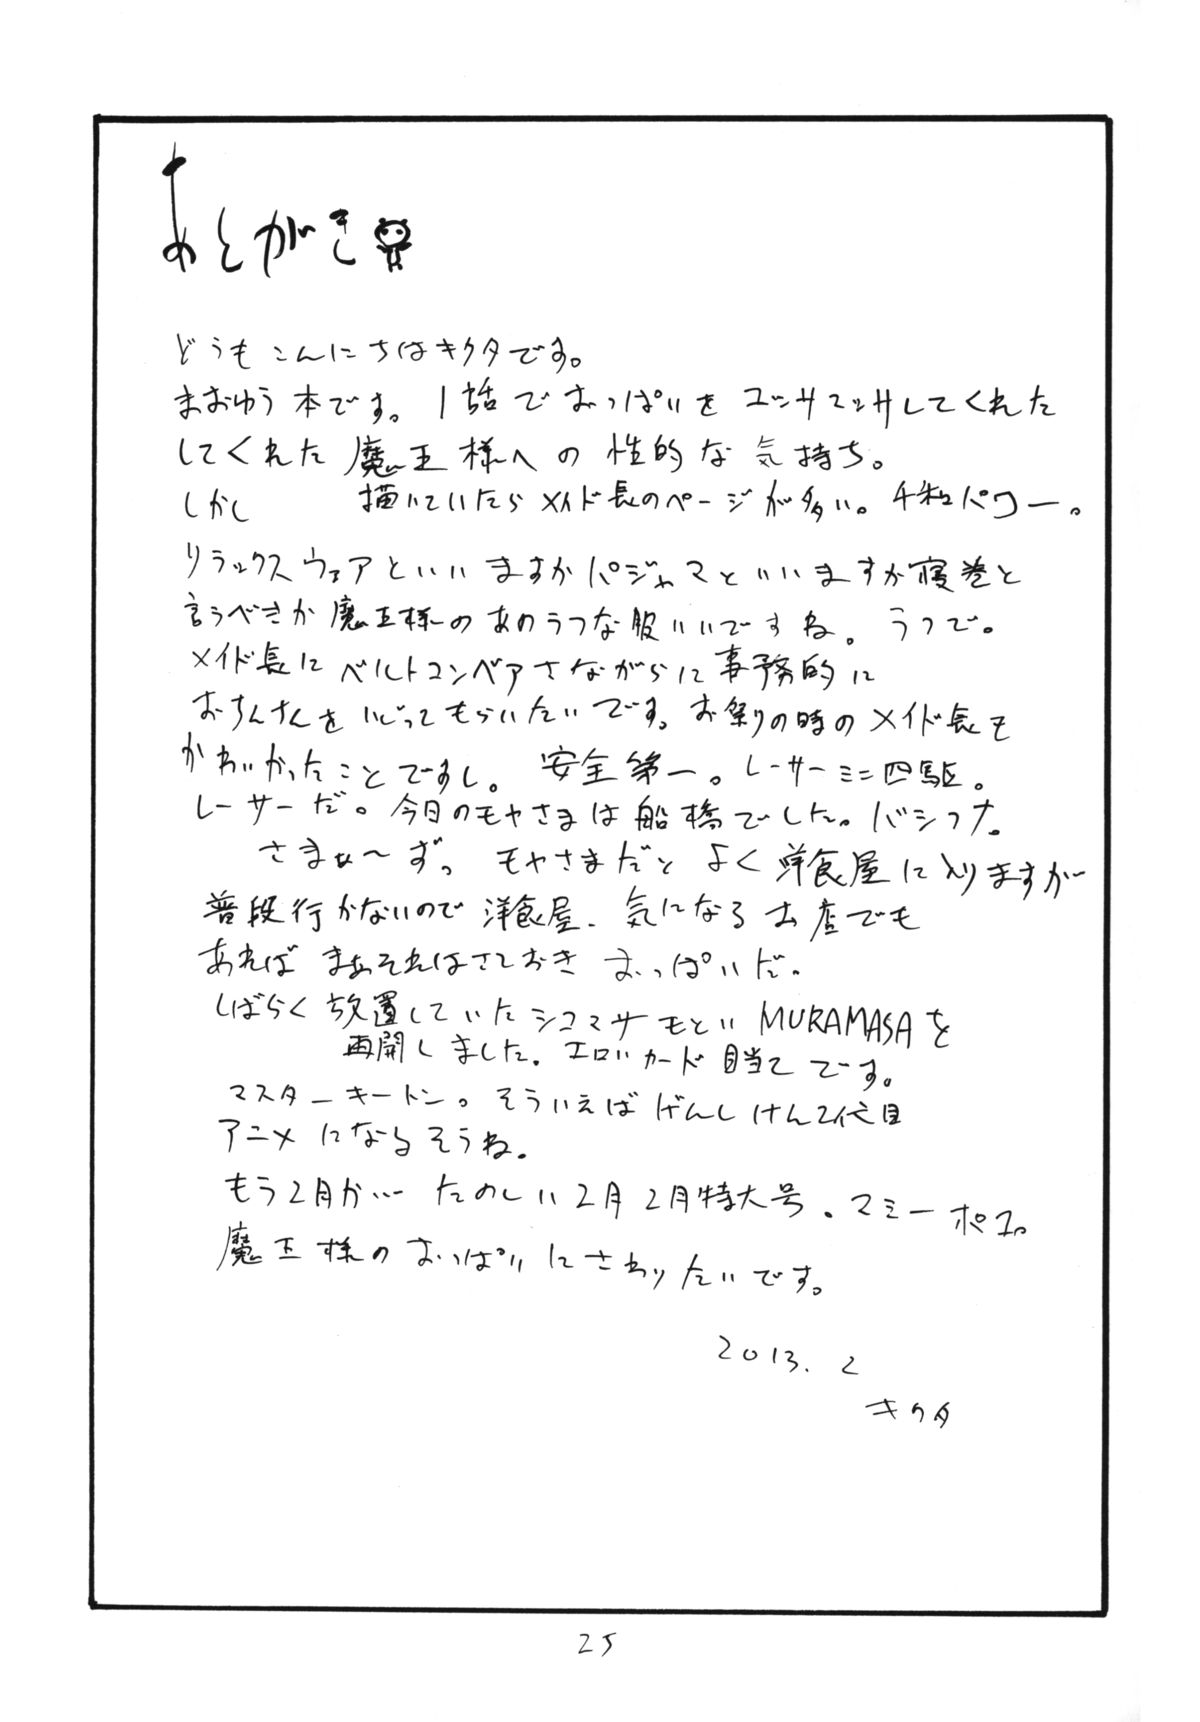 あとがき
どうもこんにちはキクタです。
まおゆう本です。1話でおっぱいをユッサユッサしてくれた
してくれた魔王様への性的な気持ち。
しかし 描いていたらメイド長のページが多い。千和パワー。
リラックスウェアといいますかパジャマといいますか寝巻と
言うべきか魔王様のあのラフな服いいですね。ラフで。
メイド長にベルトコンベアさながらに事務的に
おちんちんをいじってもらいたいです。お祭りの時のメイド長も
かわいかったことですし。 安全第一。レーサーミニ四駆。
レーサーだ。今日のモヤさまは船橋でした。バシフナ。
さまぁ〜ず。 モヤさまだとよく洋食屋に入りますが
普段行かないので洋食屋、気になるお店でも
あれば まぁそれはさておき おっぱいだ。
しばらく放置していたシコマサもといMURAMASAを
再開しました。エロいカード目当てです。
マスターキートン。そういえばげんしけん2代目
アニメになるそうね。
もう2月か… たのしい2月 2月特大号。マミーポコ。
魔王様のおっぱいにさわりたいです。
2013.2
キクタ
25